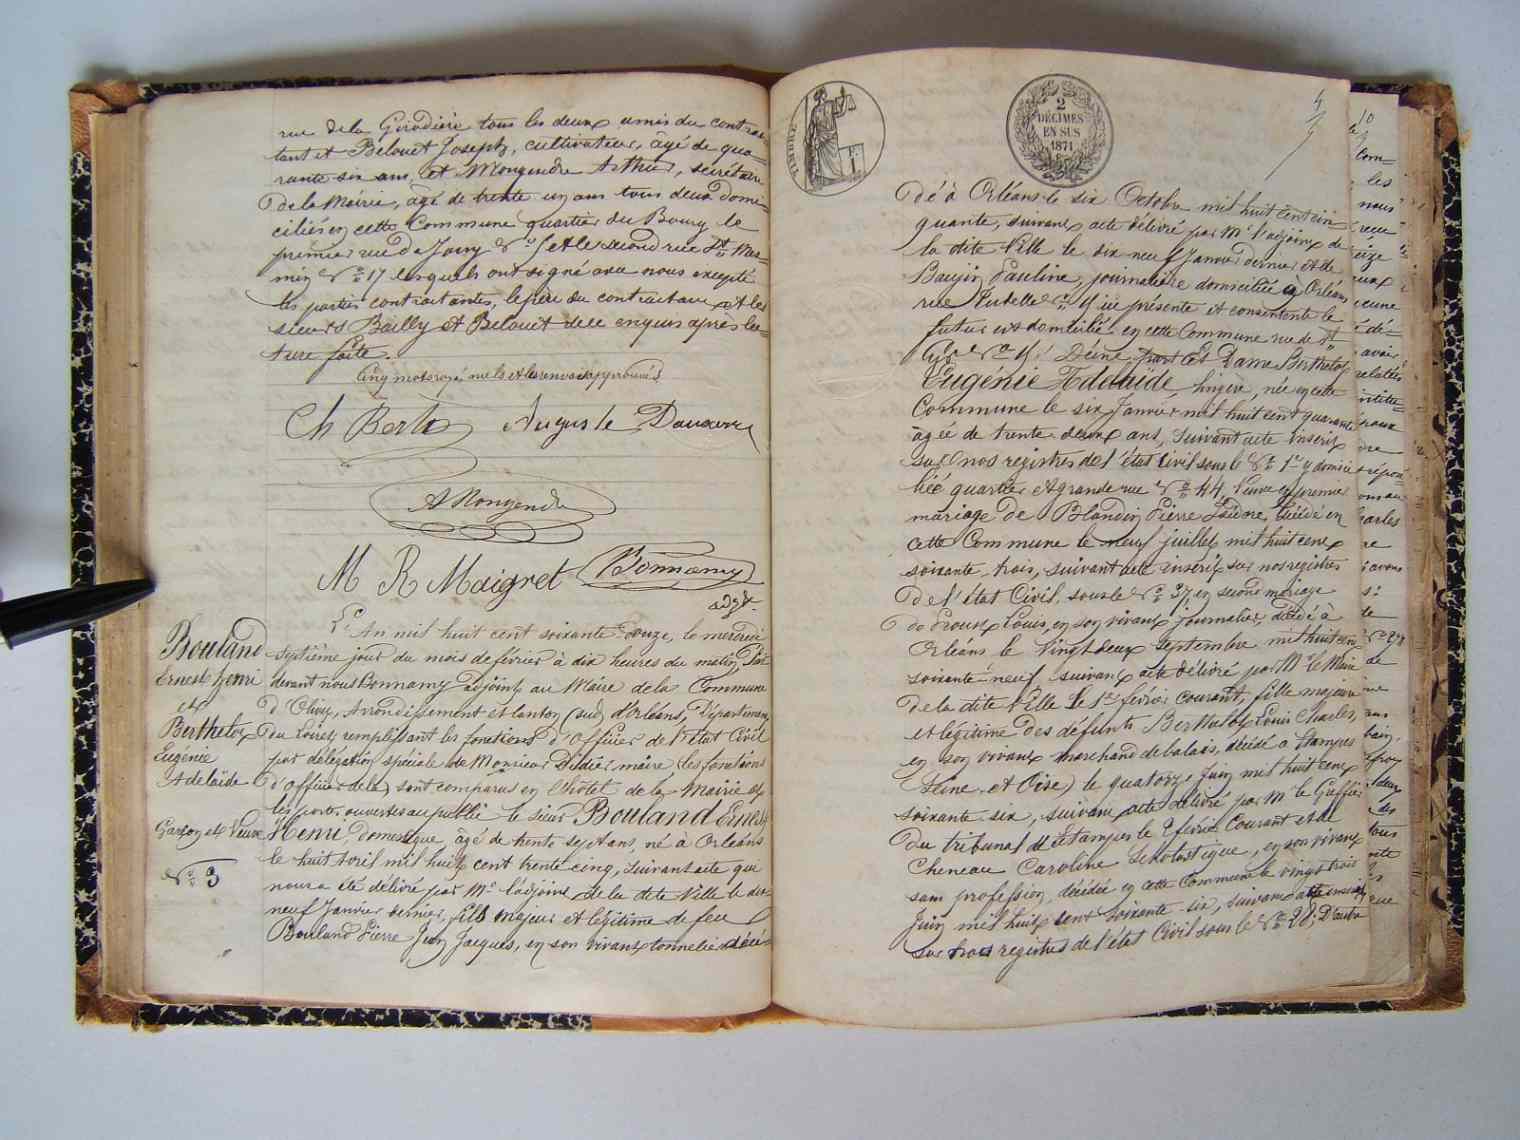 rue de la Girodière tous les deux amis du contrac
tant et Belouet Joseph, cultivateur, âgé de qua-
rante six ans, et Mongendre Arthur, secrétaire
de la Mairie, âgé de trente un ans tous deux domi-
ciliés en cette Commune quartier du Bourg le
premier rue de Jouy No 5 et le second rue St Mes-
min No 17 lesquels ont signé avec nous excepté
les parties contractantes, le père du contractant et les
sieurs Bailly et Belouet de ce enquis après lec-
ture faite.
Cinq mots rayés nuls et les renvois approuvés
Ch Berto Auguste
A Mongendre
M R Maigret Bonnamy
adjt
L'An mil huit cent soixante douze, le mercredi
septième jour du mois de février à dix heures du matin, Par
devant nous Bonnamy adjoint au Maire de la Commune
d'Olivet, Arrondissement et canton (sud) d'Orléans, Département
du Loiret, remplissant les fonctions d'Officier de l'état Civil
par délégation spéciale de Monsieur Didier, maire (les fonctions
d'officier de la) sont comparus en l'hôtel de la Mairie et
les portes ouvertes au public le sieur Bouland Ernest
Henri, Domestique, âgé de trente sept ans, né à Orléans
le huit Avril mil huit cent trente cinq, suivant acte qui
nous a été délivré par Mr l'adjoint de la dite Ville le dix
neuf Janvier dernier, fils majeur et légitime de feu
Bouland Pierre Jean Jacques, en son vivant tonnelier décé-
Bouland
Ernest Henri
et
Berthelot
Eugénie
Adelaïde
Garçon et Veuve
No 3
TIMBRE
2
DÉCIMES
EN SUS
1871
dé à Orléans le six Octobre mil huit cent cin
quante, suivant acte délivré par Mr l'adjoint de
la dite Ville le dix neuf Janvier dernier et de
Baujin Pauline, journalière domiciliée à Orléans
rue No 4 ici présente et consentante le
futur est domicilié en cette Commune rue de St
No 4; D'une part Et Dame Berthelot
Eugénie Adelaïde lingère, née en cette
Commune le six Janvier mil huit cent quarante
âgée de trente deux ans, suivant acte inscrit
sur nos registres de l'état Civil sous le No 1er y domici
liée quartier et grande rue No 44 Veuve en premier
mariage de Blandin Pierre Isidore, décédé en
cette Commune le neuf juillet mil huit cent
soixante trois, suivant acte inscrit sur nos registres
de l'état Civil sous le No 37 en second mariage
de Proux Louis, en son vivant journalier, décédé à
Orléans le Vingt deux Septembre mil huit cent
soixante neuf suivant acte délivré par Mr le Maire
de la dite Ville le 1er février courant, fille majeure
et légitime des défunts Berthelot Louis Charles,
en son vivant marchand de balais, décédé à Etampes
(Seine et Oise) le quatorze Juin mil huit cent
soixante six, suivant acte délivré par Mr le Greffier
du tribunal d'Etampes le 2 février Courant et de
Cheneau Caroline Scholastique, en son vivant
sans profession, décédée en cette Commune le vingt trois
Juin mil huit cent soixante six, suivant acte inscrit
sur nos registres de l'état Civil sous le No 28; D'autre